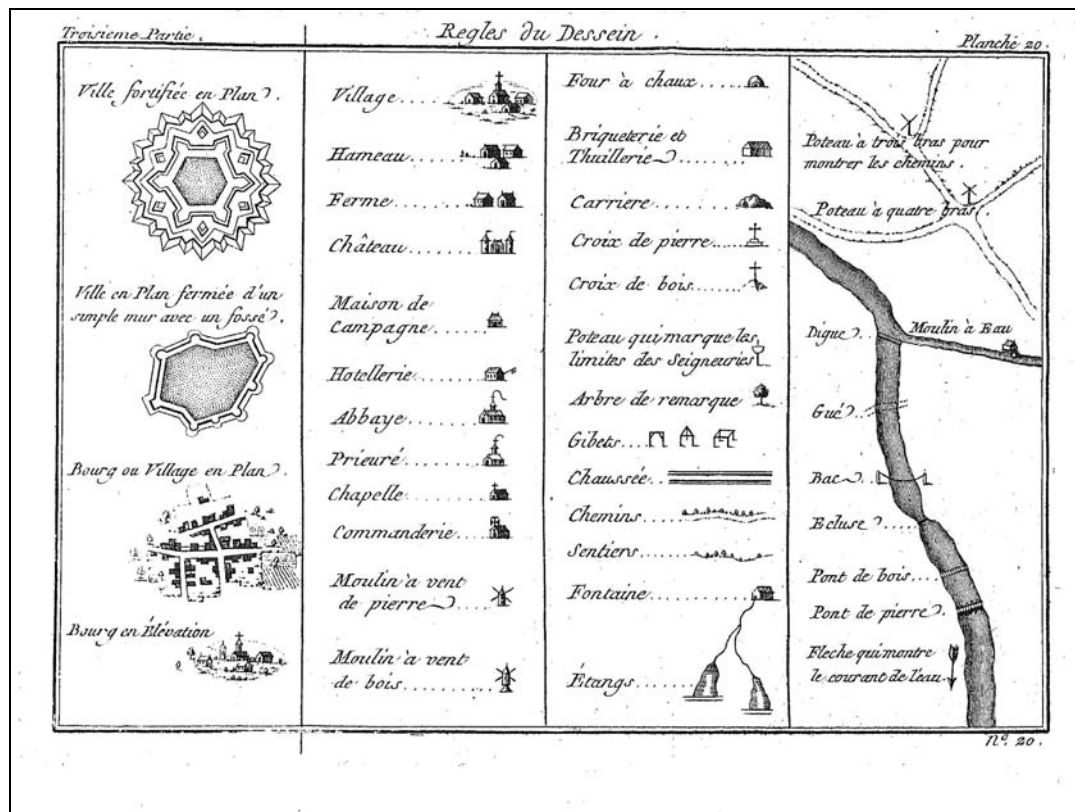 Troisieme Partie.
Regles du Dessein.
Planche 20.
Ville fortifiée en Plan.
Ville en Plan fermée d'un
simple mur avec un fossé.
Bourg ou Village en Plan.
Bourg en Élévation
Village
Hameau
Ferme
Château
Maison de
Campagne
Hotellerie
Abbaye
Prieuré
Chapelle
Commanderie
Moulin à vent
de pierre
Moulin à vent
de bois
Four à chaux
Briqueterie et
Thuillerie
Carriere
Croix de pierre
Croix de bois
Poteau qui marque les
limites des Seigneuries
Arbre de remarque
Gibets
Chaussée
Chemins
Sentiers
Fontaine
Étangs
Poteau à trois bras pour
montrer les chemins.
Poteau à quatre bras.
Digue
Moulin à Eau
Gué
Bac
Ecluse
Pont de bois
Pont de pierre
Fleche qui montre
le courant de l'eau
N.º 20.